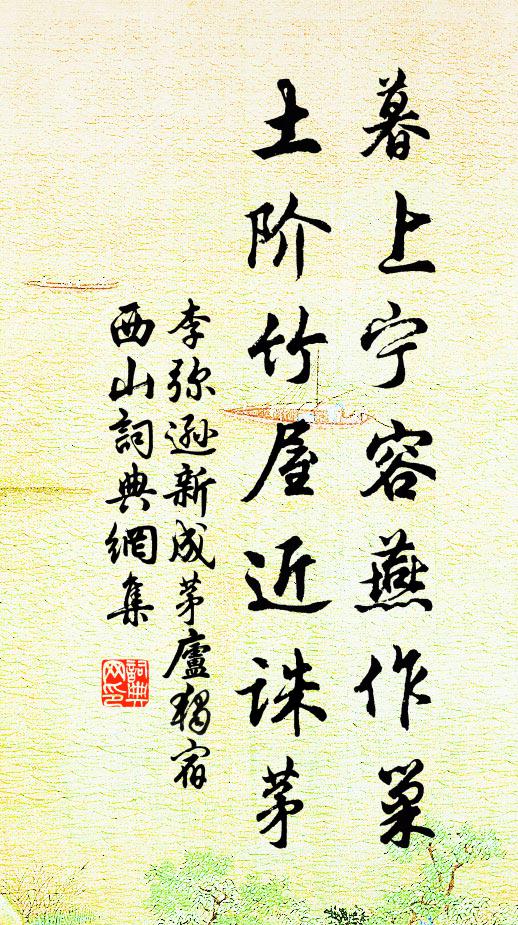 暮上宁容燕作巢
土阶竹屋近诛茅
李弥逊新成茅廬独宿
西山詞典網集
詞典
网印